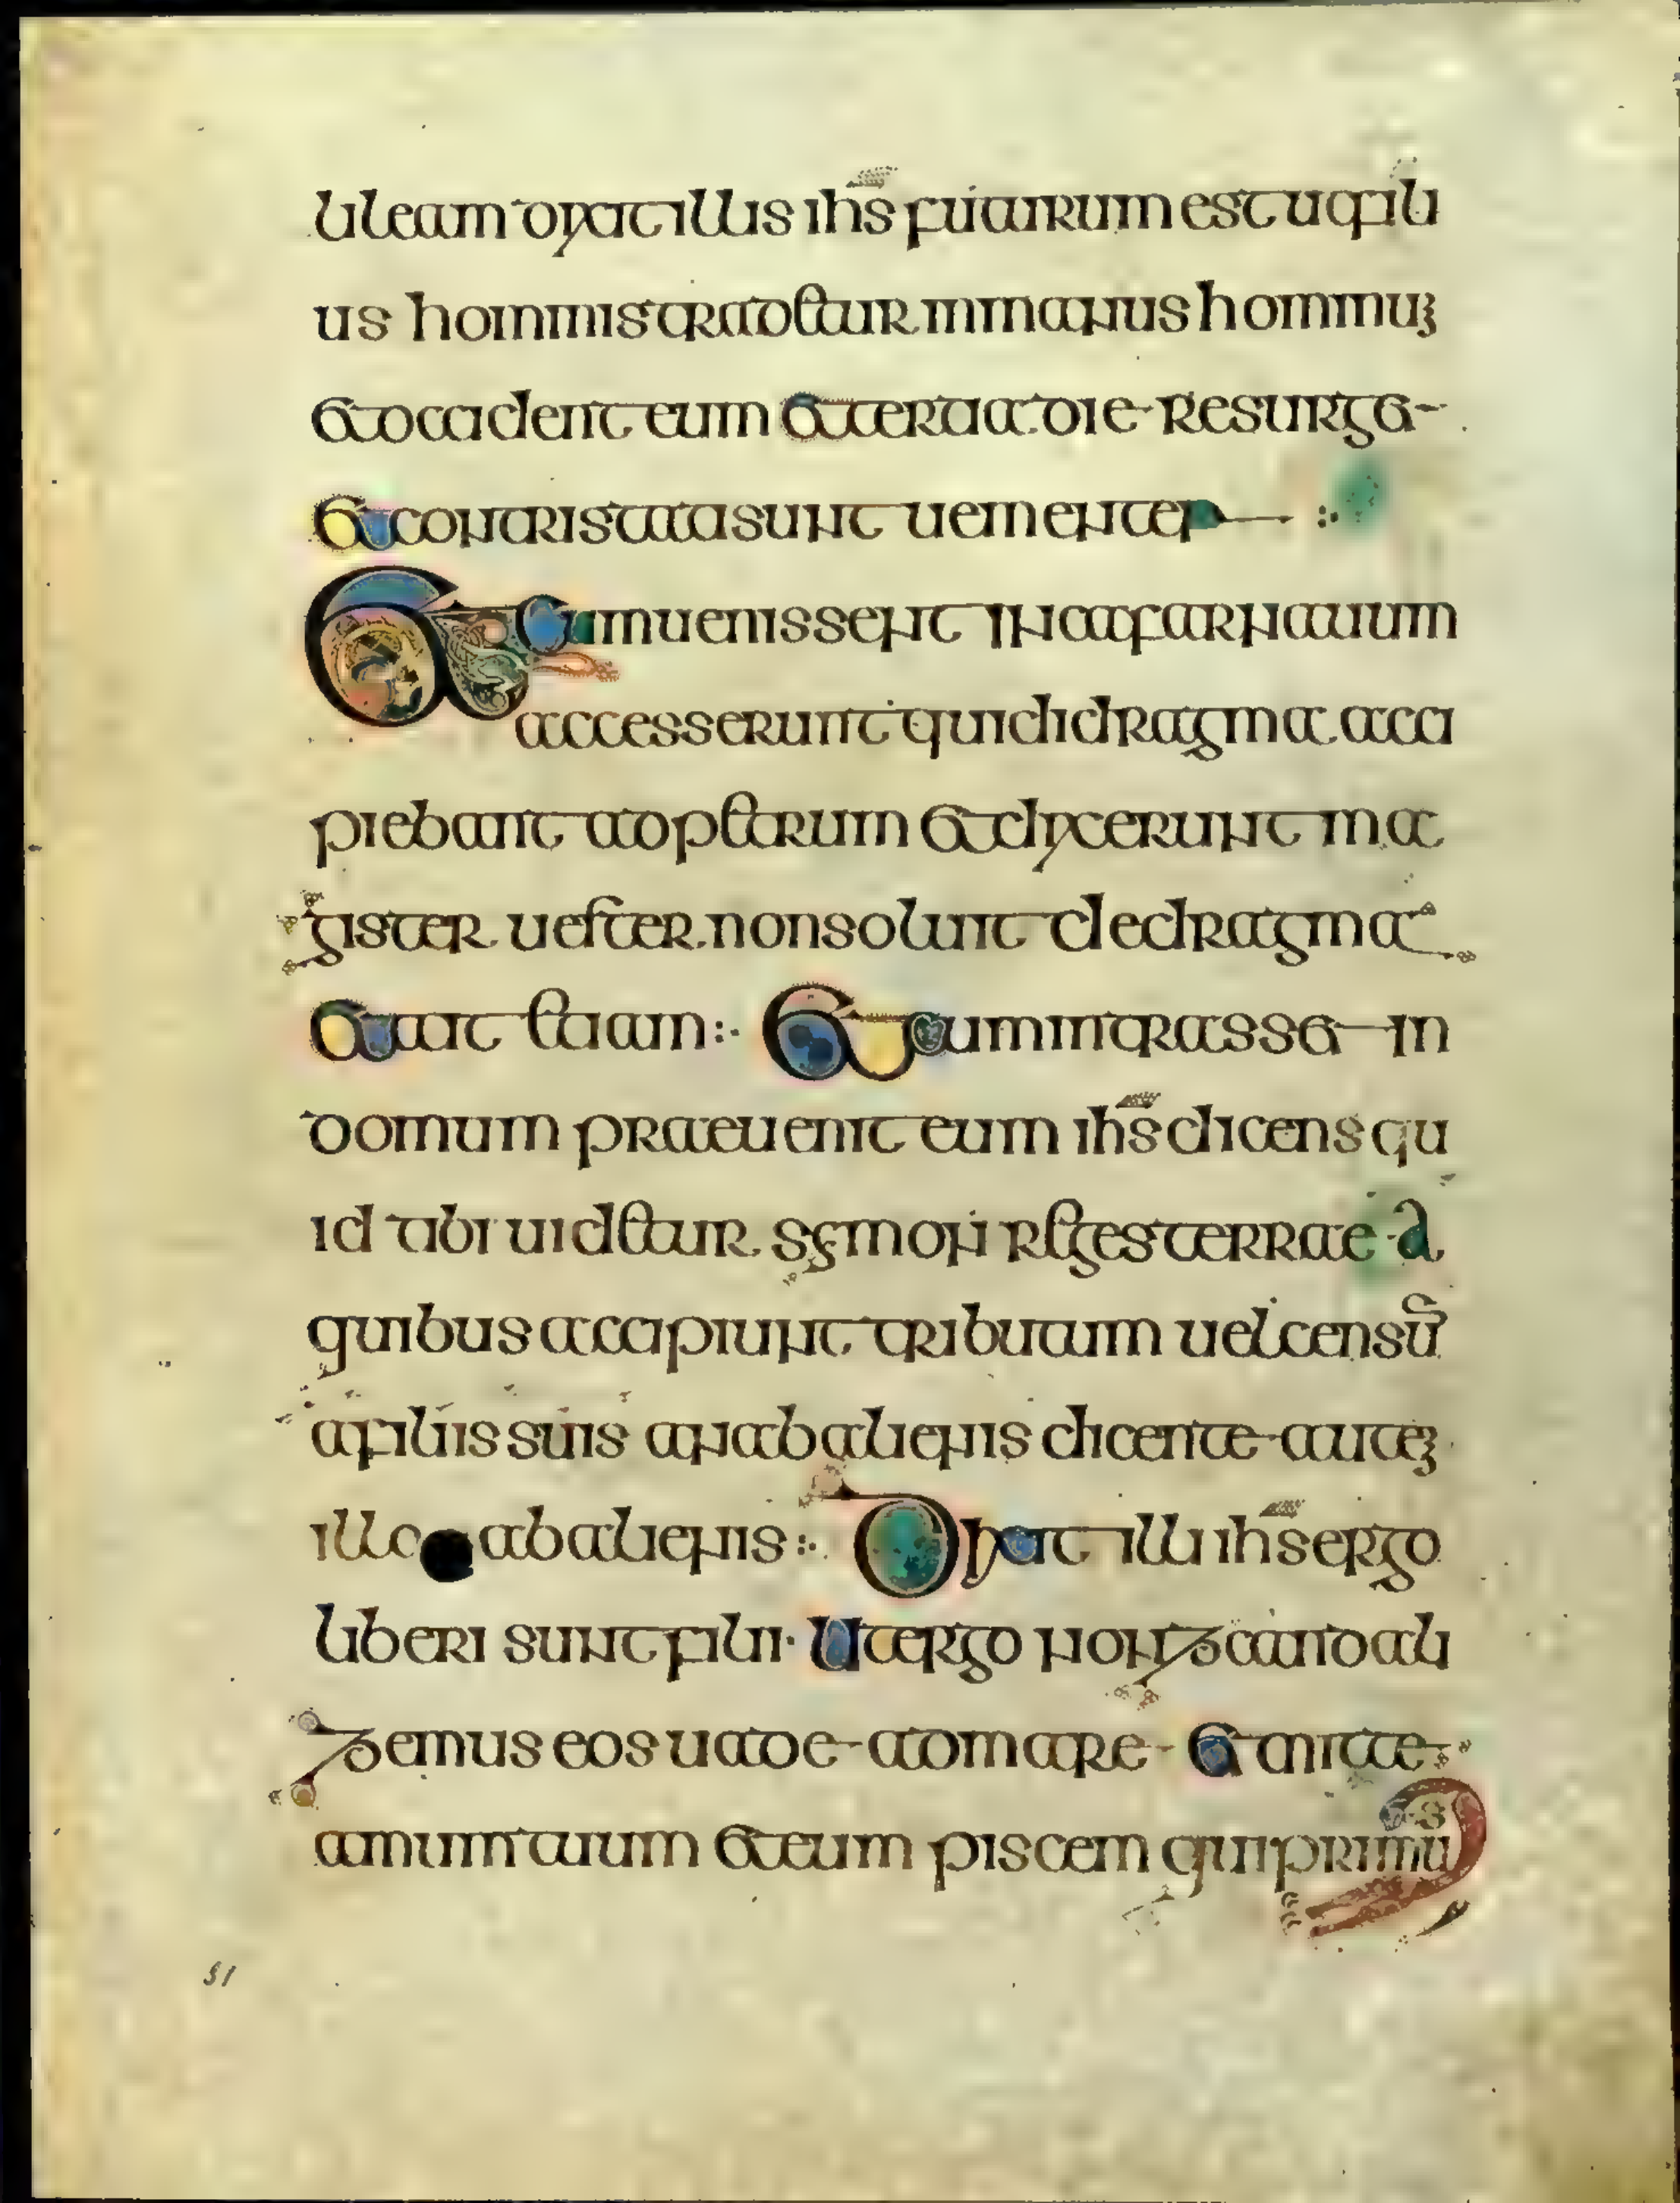 lileam dixit illis ihs futurum est ut fili
us hominis tradetur in manus hominu
et occident eum et tertia die resurget
et contristati sunt uementer
Et cum uenissent in capharnauum
accesserunt qui didragma acci
piebant ad petrum et dixerunt ma
gister uester non soluit dedragma
et ait etiam Et cum intrasset in
domum praeuenit eum ihs dicens qu
id tibi uidetur simon reges terrae a
quibus accipiunt tributum uel censū
a filiis suis an ab alienis dicente autē
illo ab alienis Dixit illi ihs ergo
liberi sunt filii Ut ergo non scandali
zemus eos uade ad mare et mitte
amum tuum et eum piscem qui primū
51